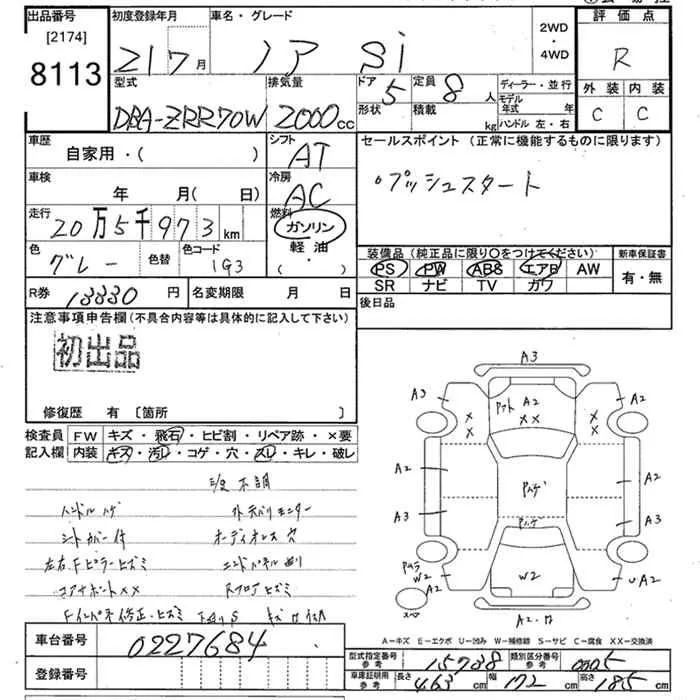 出品番号 [2174] 8113
初度登録年月 21 7月
車名・グレード ノア Si
2WD・4WD
評価点 R
外装 C 内装 C
型式 DBA-ZRR70W
排気量 2000cc
ドア 5 形状
定員 8人 積載 kg
ディーラー・並行
モデル年式 年
ハンドル 左・右
車歴 自家用・( )
シフト AT
セールスポイント (正常に機能するものに限ります)
・プッシュスタート
車検 年 月( 日)
冷房 AC
走行 20万5千973km
燃料 ガソリン 軽油 ( ・ )
色 グレー 色替 色コード 1G3
装備品 (純正品に限り○をつけてください)
新車保証書 有・無
PS PW ABS エアB AW
SR ナビ TV カワ
R券 13330円 名変期限 月 日
後日品
注意事項申告欄 (不具合内容等は具体的に記入して下さい)
初出品
修復歴 有 [箇所 ]
検査員記入欄
FW キズ・飛石・ヒビ割・リペア跡・×要
内装 キズ・汚レ・コゲ・穴・スレ・キレ・破レ
ハンドルハゲ
シートカバー付
オーディオレス 穴
左右Fピラーヒズミ
コアサポートXX
RフロアヒズミFインパネ修正・ヒズミ
A3
A3 A2 A2
XX
A2 A2
A3 A3
W2 W2 A2
A2
スペア
A-キズ E-エクボ U-凹み W-補修跡 S-サビ C-腐食 XX-交換済
車台番号 0227684
登録番号
型式指定番号 参考 15738 類別区分番号 参考 0005
車庫証明用 参考 長さ 463cm 幅 172cm 高さ 185cm